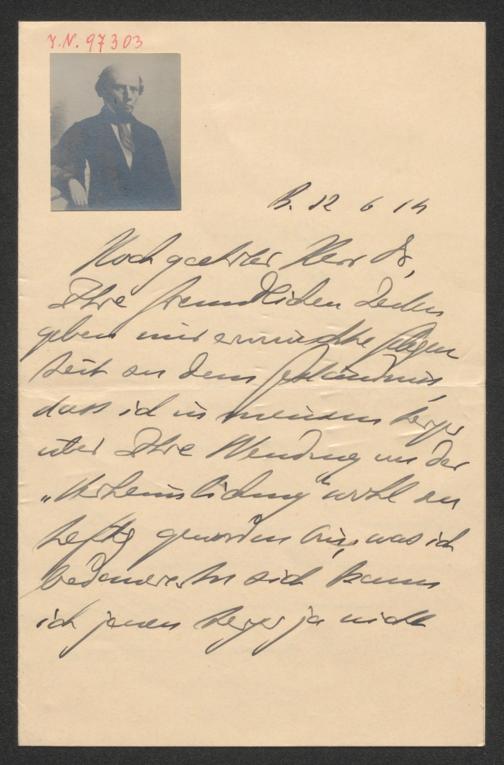 I.N. 97303
B. 12 6 14
Hochgeehrter Herr Dr,
Ihre freundlichen Zeilen
geben mir erwünschte Gelegen
heit zu dem Geständnis,
dass ich in meinem Aerger
über Ihre Wendung von der
„Verheimlichung" wohl zu
heftig geworden bin, was ich
bedauere. An sich kann
ich jenen Aerger ja nicht